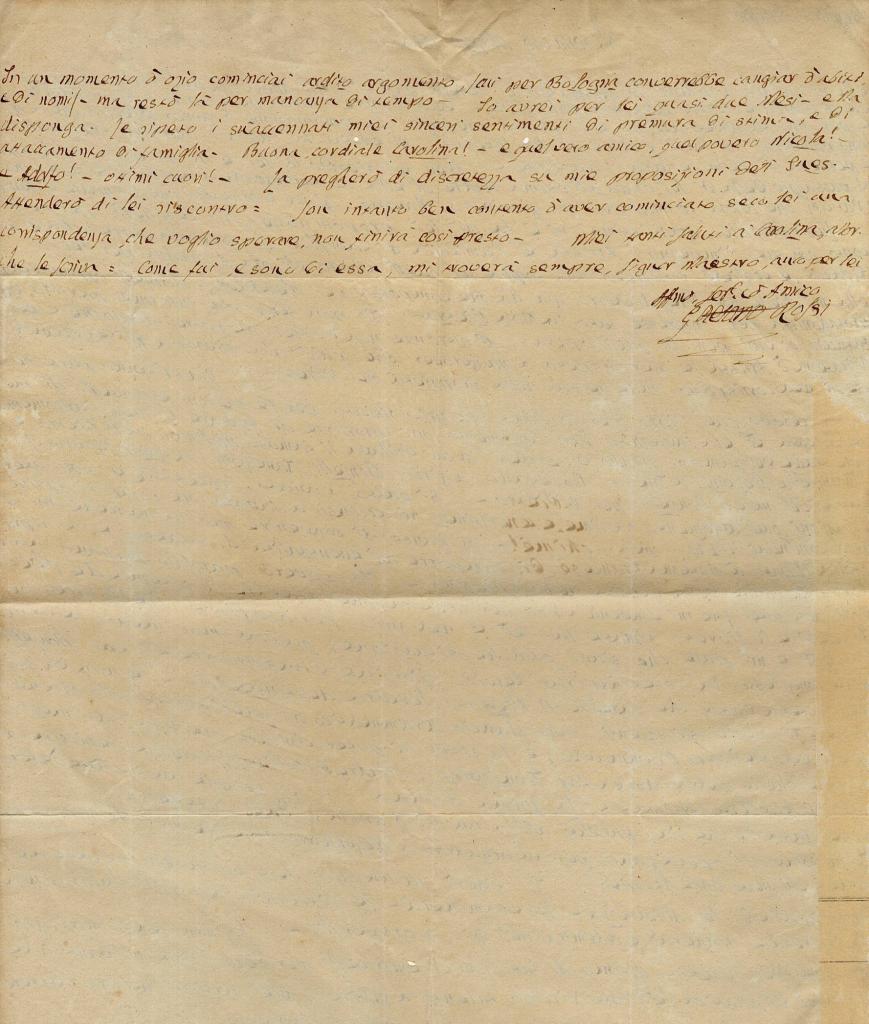 In un momento d'ozio cominciai ardito argomento, per Bologna converrebbe cangiar d'abiti,
e di nomi - ma restò là per mancanza di tempo - Io avrei per lei quasi due Mesi - Ella
disponga. Le ripeto i succennati miei sinceri sentimenti di premura di stima, e di
attaccamento di famiglia - Buona, cordiale Carolina! - e quel vero amico, quel povero Nicola! -
e Adolfo! - ottimi cuori! - La pregherò di discretezza su mie proposizioni
Attenderò di lei riscontro = Son intanto ben contento d'aver cominciato seco lei una
corrispondenza, che voglio sperare, non finirà così presto - Miei tanti saluti a Carolina, allor
che le scriva = Come fui, e sono di essa, mi troverà sempre, Signor Maestro, per lei
Affmo Serv. ed Amico
Gaetano Rossi